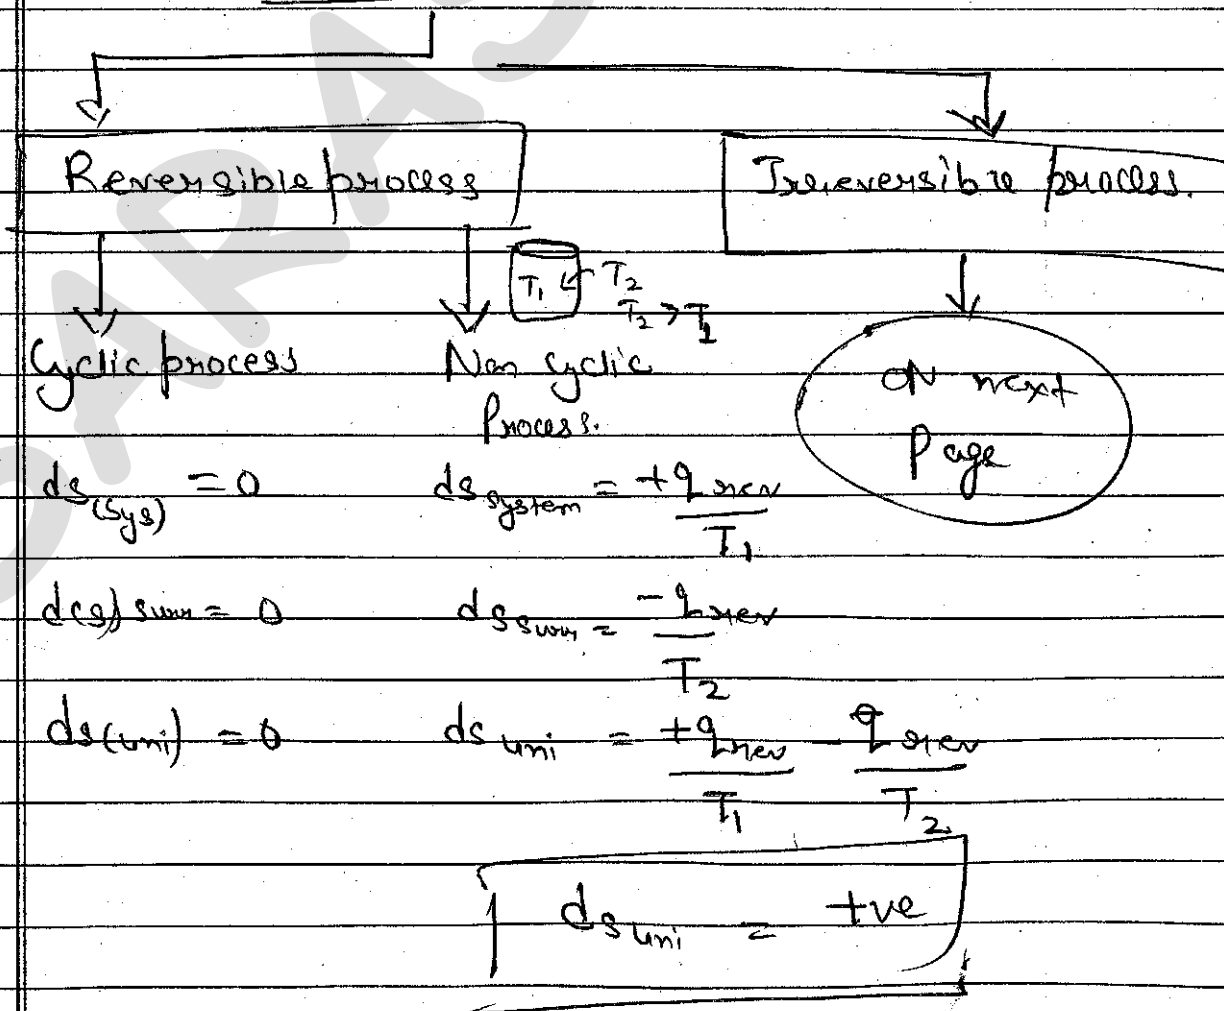 Reversible process
Irreversible process.
T₁ T₂
T₂ > T₁
Cyclic process
Non Cyclic
Process.
ON next
Page
ds(sys) = 0
ds system = +q rev / T₁
d(s) surr = 0
ds surr = -q rev / T₂
ds(uni) = 0
ds uni = +q rev / T₁ - q rev / T₂
ds uni = +ve